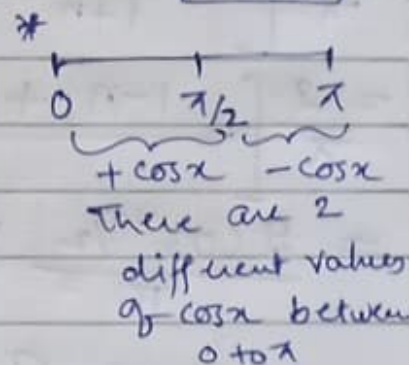 *
0 π/2 π
+cosx -cosx
There are 2
different values
of cosx between
0 to π